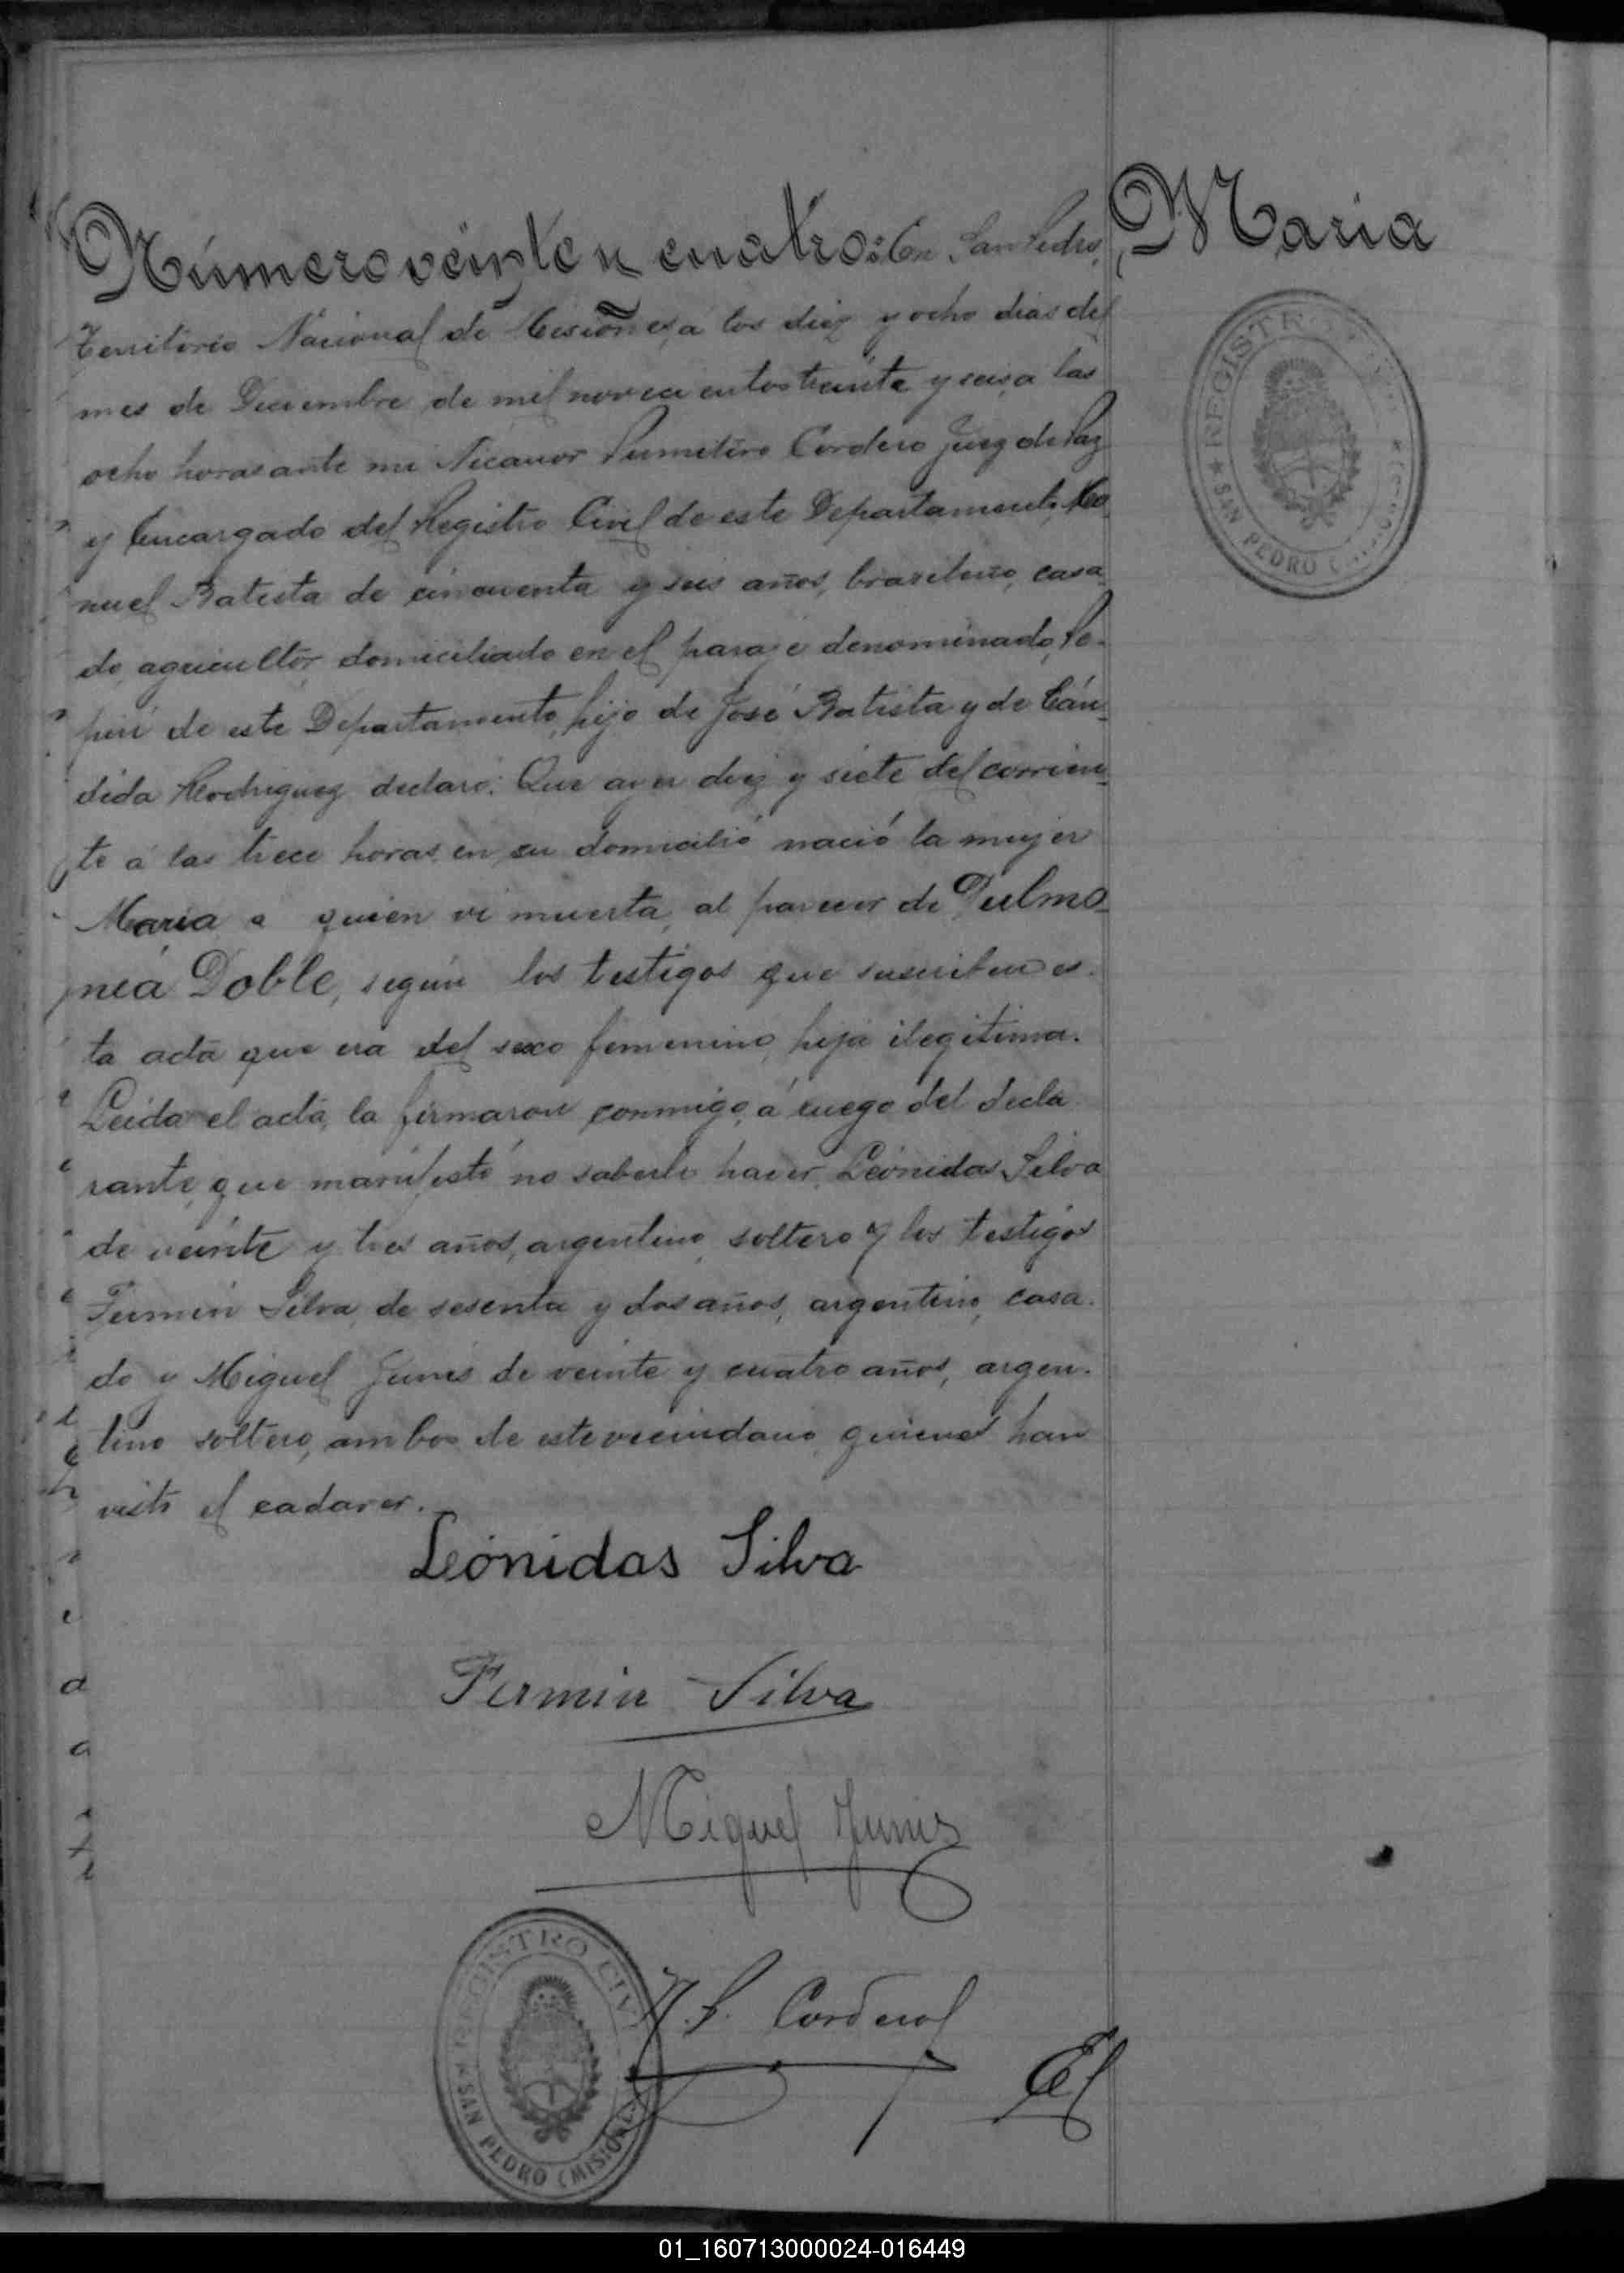 Número veinte y cuatro: En San Pedro,
Maria
Territorio Nacional de Misiones, a los diez y ocho dias del
mes de Diciembre de mil novecientos treinta y seis, a las
ocho horas ante mi Nicanor Cordero Juez de Paz
y Encargado del Registro Civil de este Departamento,
nuel Batista de cincuenta y seis años, brasileño, casa
do, agricultor, domiciliado en el paraje denominado,
de este Departamento, hijo de José Batista y de Cán_
dida Rodriguez declaró: Que ayer diez y siete del corrien_
te á las trece horas, en su domicilio nació la mujer
Maria a quien vi muerta, al parecer de Pulmo_
nía Doble, según los testigos que suscriben es-
ta acta que era del sexo femenino, hija ilegitima.
Leida el acta, la firmaron conmigo, á ruego del decla
rante, que manifestó no saberlo hacer, Leónidas Silva
de veinte y tres años, argentino, soltero y los testigos
Fermin Silva, de sesenta y dos años, argentino, casa-
do y Miguel Junis de veinte y cuatro años, argen-
tino soltero, ambos de este vecindario quienes han
visto el cadaver.
Leónidas Silva
Fermin Silva
Miguel Junis
Cordero
REGISTRO CIVIL
SAN PEDRO (MISIONES)
REGISTRO
SAN PEDRO
01_160713000024-016449